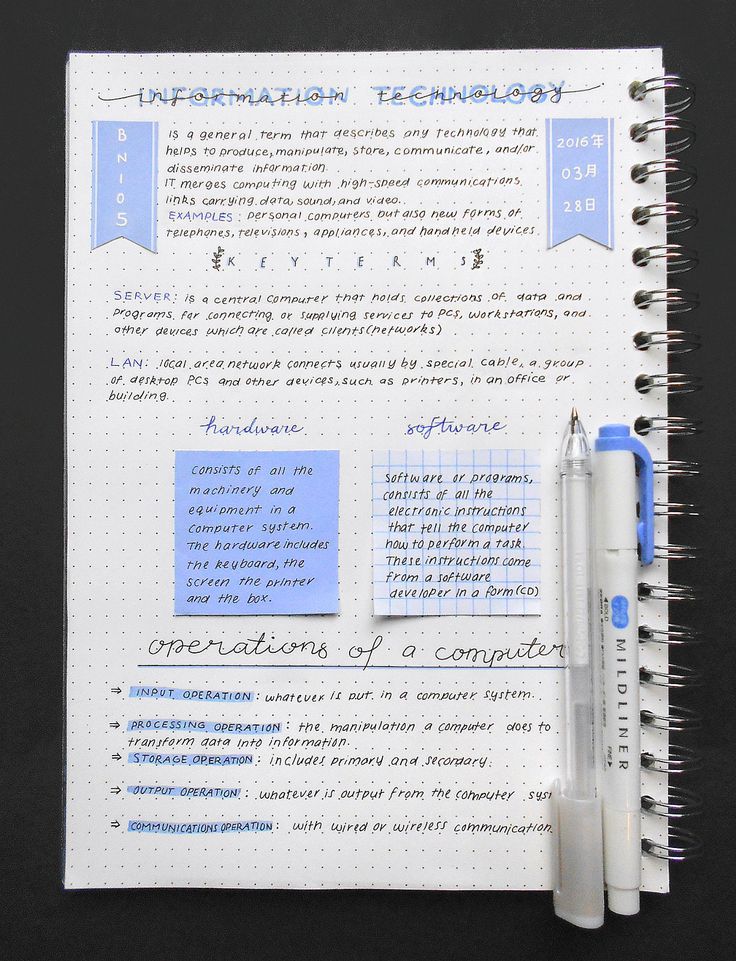 information technology
INFORMATION TECHNOLOGY
BN105
is a general term that describes any technology that
helps to produce, manipulate, store, communicate, and/or
disseminate information.
IT merges computing with high-speed communications
links carrying data, sound, and video.
EXAMPLES: personal computers but also new forms of
telephones, televisions, appliances, and handheld devices
2016年
03月
28日
KEY TERMS
SERVER: is a central computer that holds collections of data and
programs for connecting or supplying services to PCs, workstations, and
other devices which are called clients(networks)
LAN: local area network connects usually by special cable, a group
of desktop PCs and other devices, such as printers, in an office or
building.
hardware
Consists of all the
machinery and
equipment in a
computer system.
The hardware includes
the keyboard, the
screen the printer
and the box.
software
Software or programs,
consists of all the
electronic instructions
that tell the computer
how to perform a task.
These instructions come
from a software
developer in a form(CD)
operations of a computer
⇒ INPUT OPERATION: whatever is put in a computer system.
⇒ PROCESSING OPERATION: the manipulation a computer does to
transform data into information.
⇒ STORAGE OPERATION: includes primary and secondary.
⇒ OUTPUT OPERATION: whatever is output from the computer syst
⇒ COMMUNICATIONS OPERATION: with wired or wireless communication
BOLD
MILDLINER
FINE